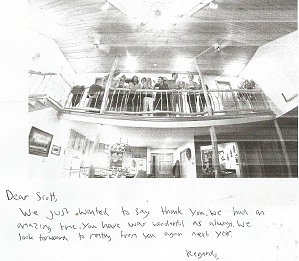 Dear Scott,
We just wanted to say thank you. We had an
amazing time. You have were wonderful as always. We
look forward to renting from you again next year.
Regards,